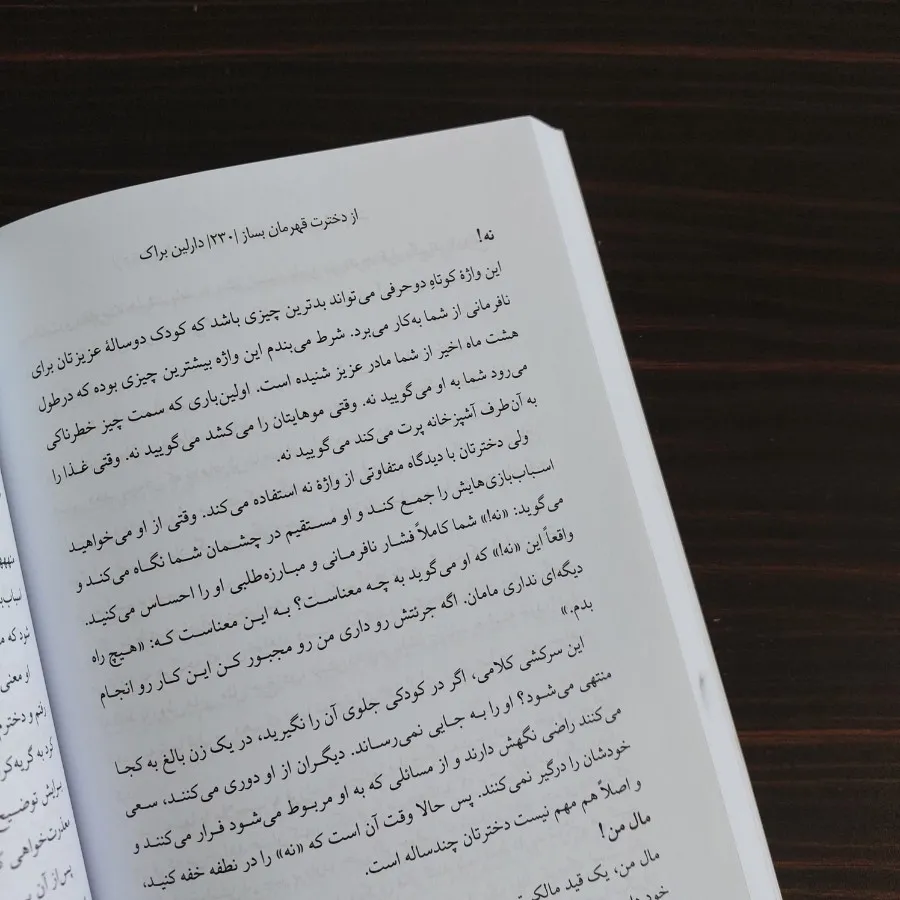 از دخترت قهرمان بساز |۲۳۰| دارلین براک
نه!
این واژهٔ کوتاهِ دوحرفی می‌تواند بدترین چیزی باشد که کودک دوسالهٔ عزیزتان برای
نافرمانی از شما به‌کار می‌برد. شرط می‌بندم این واژه بیشترین چیزی بوده که درطول
هشت ماه اخیر از شما مادر عزیز شنیده است. اولین‌باری که سمت چیز خطرناکی
می‌رود شما به او می‌گویید نه. وقتی موهایتان را می‌کشد می‌گویید نه. وقتی غـذا را
به آن‌طرف آشپزخانه پرت می‌کند می‌گویید نه.
ولی دخترتان با دیدگاه متفاوتی از واژهٔ نه استفاده می‌کند. وقتی از او می‌خواهید
اسباب‌بازی‌هایش را جمع کنـد و او مستقیم در چشمان شما نگاه می‌کنـد و
می‌گوید: «نه!» شما کاملاً فشار نافرمانی و مبارزه‌طلبی او را احساس می‌کنید.
واقعاً این «نه!» که او می‌گوید به چـه معناست؟ بـه ایـن معناست کـه: «هیـچ راه
دیگه‌ای نداری مامان. اگه جرئتش رو داری من رو مجبور کـن ایـن کـار رو انجام
بدم.»
این سرکشی کلامی، اگر در کودکی جلوی آن را نگیرید، در یک زن بالغ به کجـا
منتهی می‌شـود؟ او را بـه جـایی نمی‌رسـاند. دیگـران از او دوری می‌کننـد، سـعی
می‌کنند راضی نگهش دارند و از مسائلی که به او مربـوط می‌شود فـرار می‌کننـد و
خودشان را درگیر نمی‌کنند. پس حالا وقت آن است که «نه» را در نطفه خفه کنید،
و اصلاً هم مهم نیست دخترتان چندساله است.
مال من!
مال من، یک قید